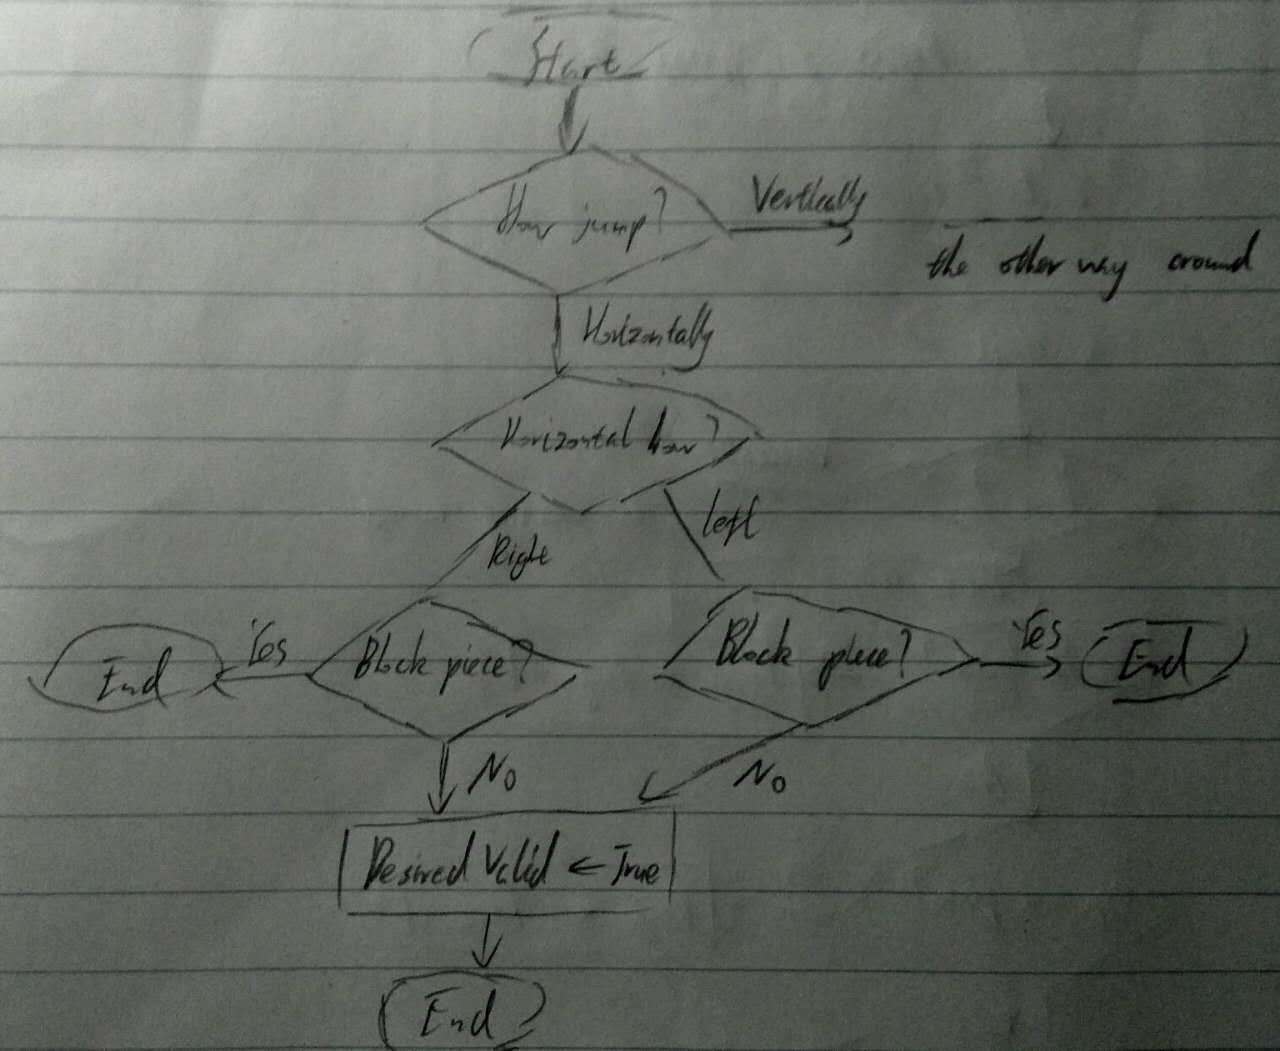 Start
How jump?
Vertically
the other way around
Horizontally
Horizontal how?
Right
left
Block piece?
Yes
End
Block piece?
Yes
End
No
No
Desired Valid ← True
End